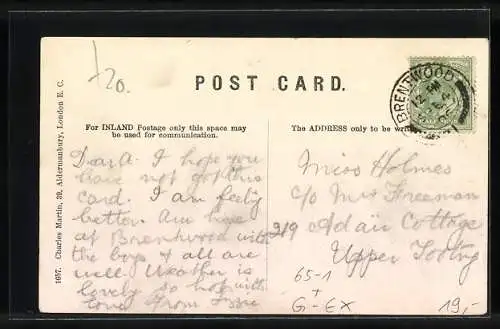 120.
POST CARD.
BRENTWOOD
For INLAND Postage only this space may
be used for communication.
The ADDRESS only to be
1657. Charles Martin, 39, Aldermanbury, London E. C.
Dear A. I hope you
have not got this
card. I am feeling
better. Am here
at Brentwood with
the boys & all are
well Weather is
lovely so hope with
love from
Miss Holmes
c/o Mrs Freeman
219 Adair Cottage
Upper Tooting
65-1
+
G-EX
19,-